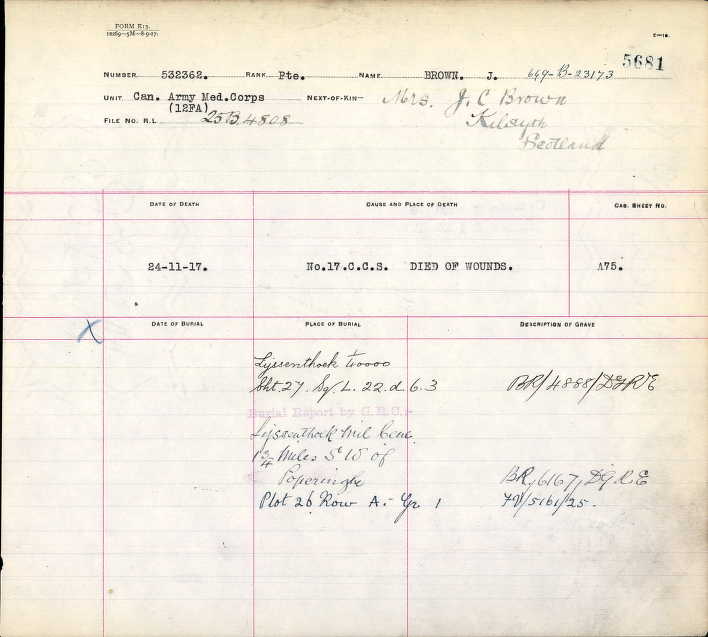 FORM R13.
10269—5M—8-9-17.
E—18.
5681
NUMBER 532362. RANK Pte. NAME BROWN. J. 649-B-23173
UNIT Can. Army Med.Corps NEXT-OF-KIN— Mrs. J. C Brown
(12FA) Kilsyth
FILE NO. R.L 25B.4808 Scotland
DATE OF DEATH CAUSE AND PLACE OF DEATH CAS. SHEET NO.
24-11-17. No.17.C.C.S. DIED OF WOUNDS. A75.
X DATE OF BURIAL PLACE OF BURIAL DESCRIPTION OF GRAVE
Lyssenthoek
Sht 27. Sq/ L. 22. d. 6.3 BR/4868/DGR&E
Burial Report by G.R.U:-
Lyssenthoek Mil Cem.
1 3/4 Miles S W of
Poperinghe BR,6167,DGR&E
Plot 26 Row A:- Gr 1 FV/5161/25.